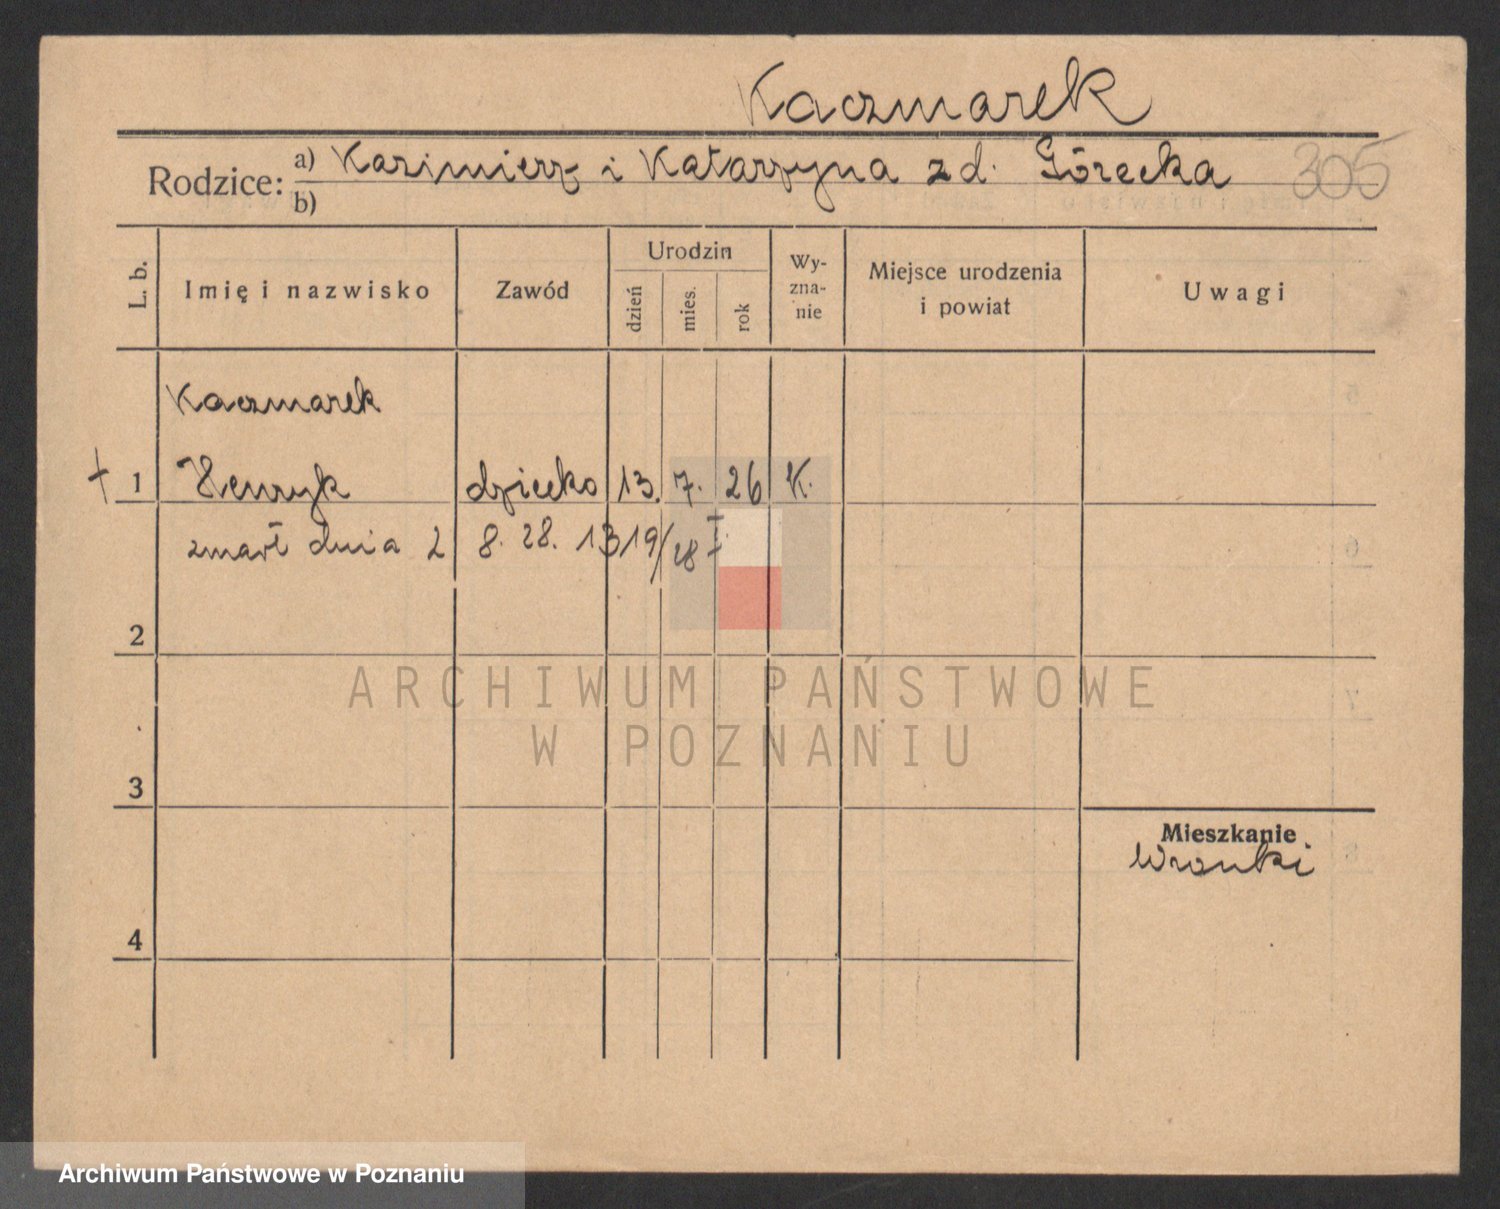 Kaczmarek
Rodzice: a) Kazimierz i Katarzyna z d. Górecka 305
b)
L. b. Imię i nazwisko Zawód Urodzin dzień mies. rok Wy-zna-nie Miejsce urodzenia i powiat Uwagi
Kaczmarek
† 1 Henryk dziecko 13. 7. 26 K.
zmarł dnia 2 8. 28. 1319/28 I
2
ARCHIWUM PAŃSTWOWE
W POZNANIU
3
Mieszkanie
Wronki
4
Archiwum Państwowe w Poznaniu